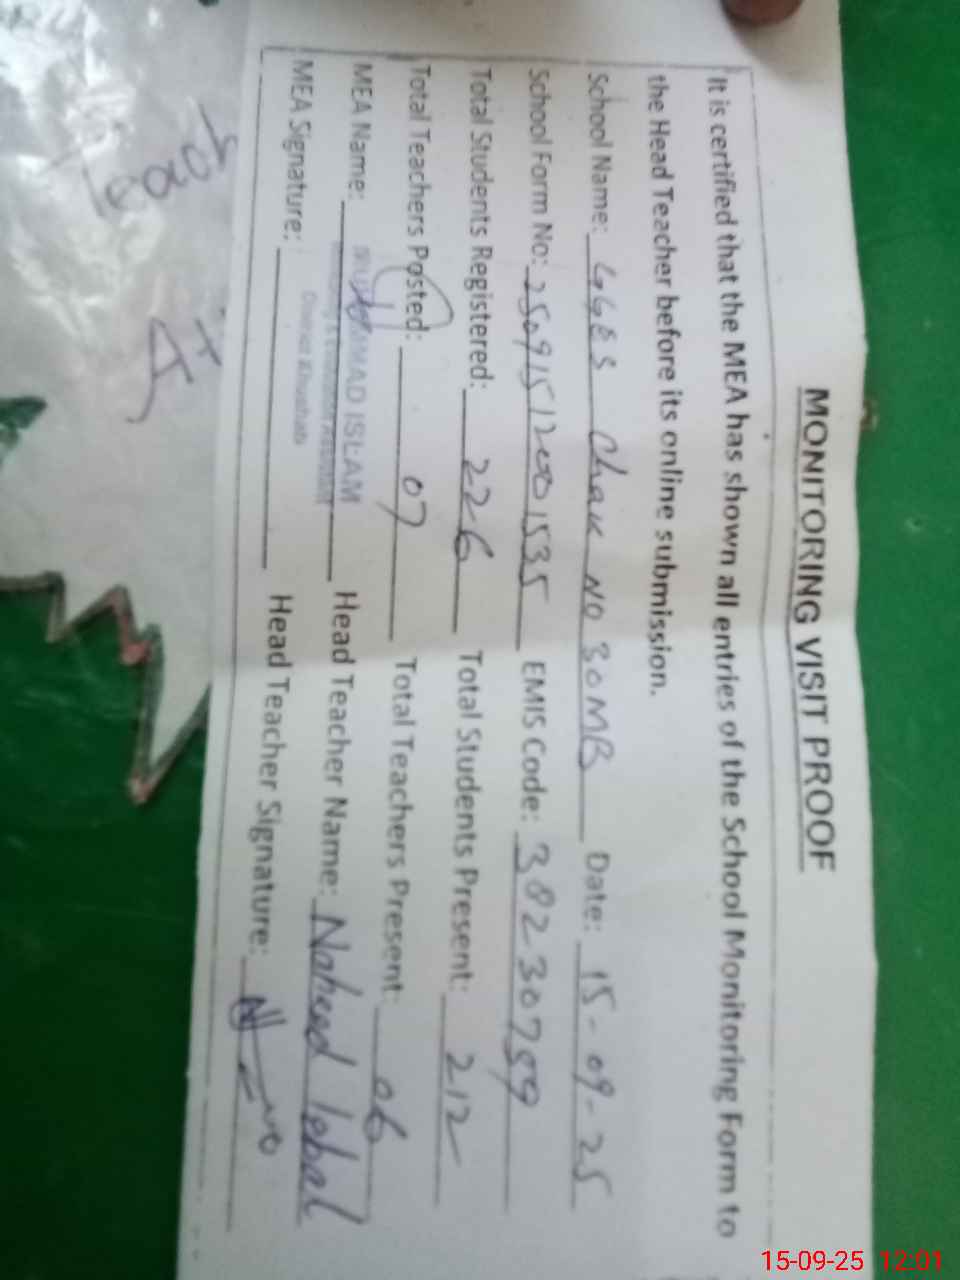 MONITORING VISIT PROOF
It is certified that the MEA has shown all entries of the School Monitoring Form to
the Head Teacher before its online submission.
School Name: GGES Chak NO 30 MB Date: 15-09-25
School Form No: 25091512001535 EMIS Code: 38230759
Total Students Registered: 226 Total Students Present: 212
Total Teachers Posted: 07 Total Teachers Present: 06
MEA Name: MUHAMMAD ISLAM Head Teacher Name: Naheed Iqbal
MEA Signature: Head Teacher Signature:
District Khushab
Teach
15-09-25 12:01